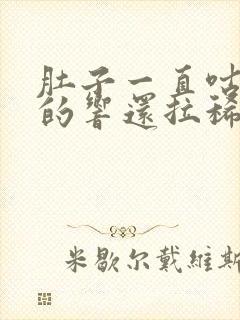 肚子一直咕
的響還拉稀
米歇尔戴維斯